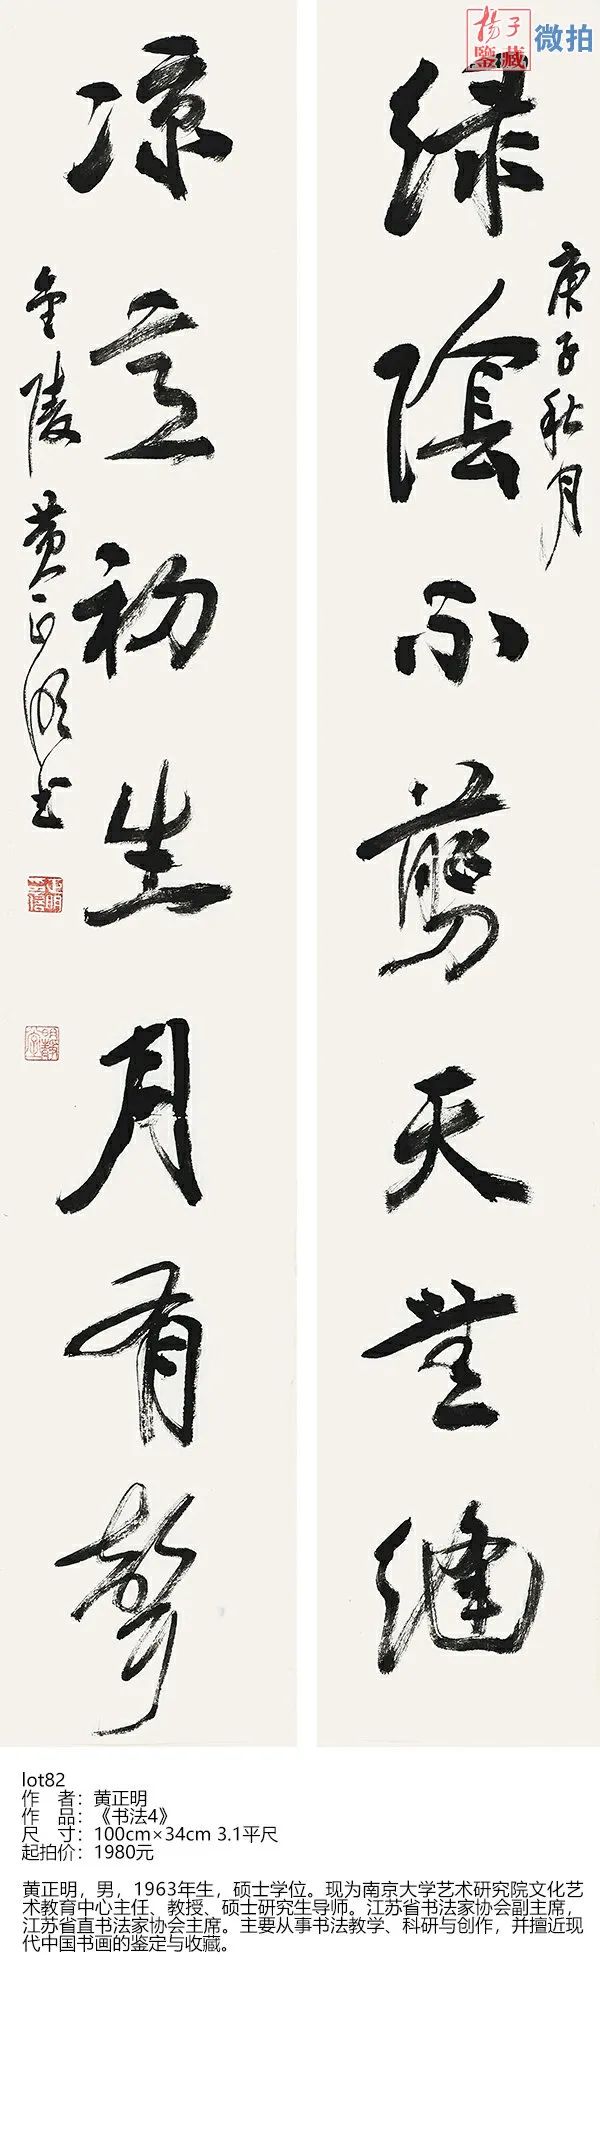 揚子
鑒藏 微拍
庚子秋月
緑陰不翦天無縫
凉意初生月有聲
金陵黄正明书
lot82
作 者：黄正明
作 品：《书法4》
尺 寸：100cm×34cm 3.1平尺
起拍价：1980元
黄正明，男，1963年生，硕士学位。现为南京大学艺术研究院文化艺
术教育中心主任、教授、硕士研究生导师。江苏省书法家协会副主席，
江苏省直书法家协会主席。主要从事书法教学、科研与创作，并擅近现
代中国书画的鉴定与收藏。